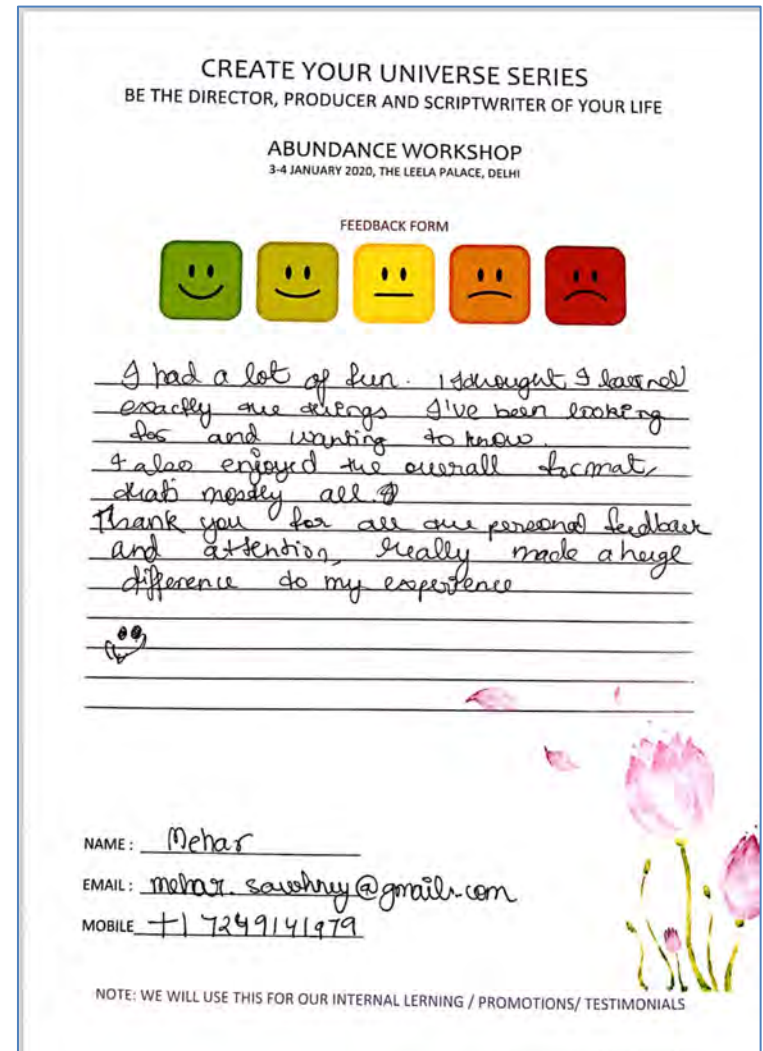 CREATE YOUR UNIVERSE SERIES
BE THE DIRECTOR, PRODUCER AND SCRIPTWRITER OF YOUR LIFE
ABUNDANCE WORKSHOP
3-4 JANUARY 2020, THE LEELA PALACE, DELHI
FEEDBACK FORM
I had a lot of fun. I thought I learned
exactly the things I've been looking
for and wanting to know.
I also enjoyed the overall format,
that's mostly all.
Thank you for all the personal feedback
and attention, really made a huge
difference to my experience
NAME: Mehar
EMAIL: mehar.sawhney@gmail.com
MOBILE +1 7249141979
NOTE: WE WILL USE THIS FOR OUR INTERNAL LERNING / PROMOTIONS/ TESTIMONIALS